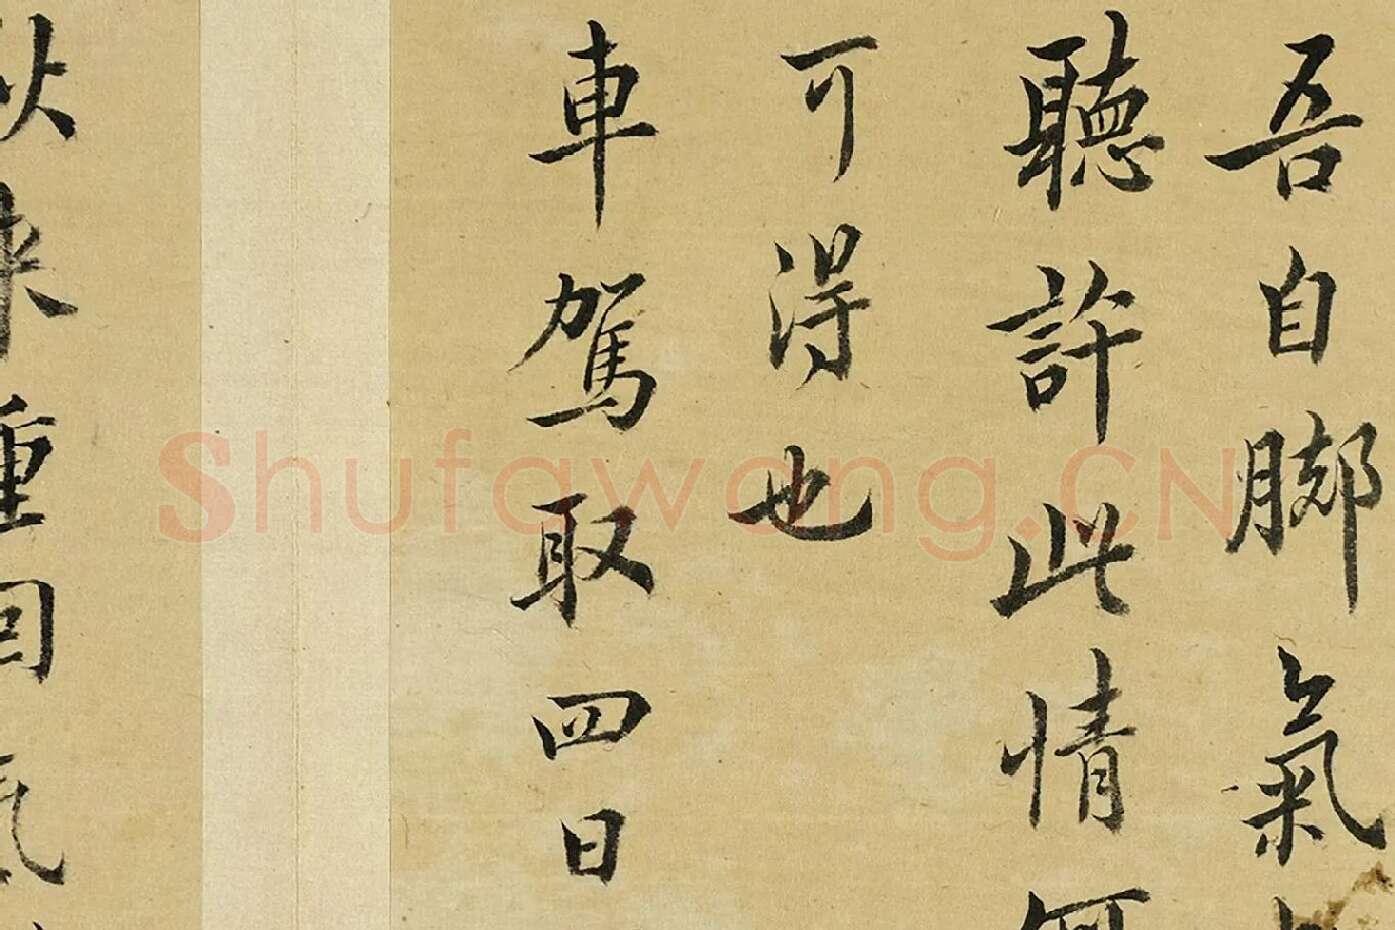 吾自腳氣
聽許此情何
可得也
車駕取四日
秋來
重回氣
Shufawang.CN